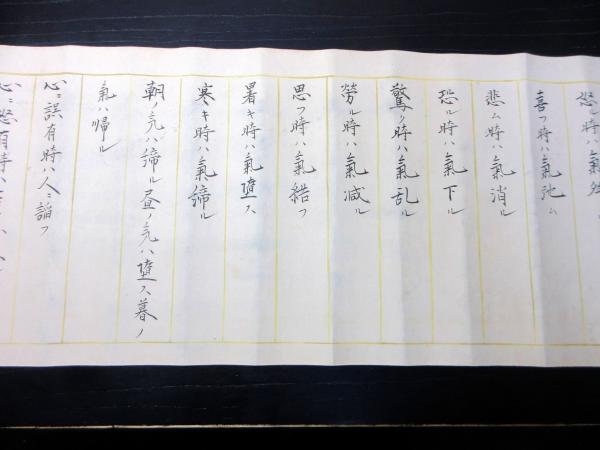 怒ル時ハ氣
喜フ時ハ氣弛ム
悲ム時ハ氣消ル
恐ル時ハ氣下ル
驚ク時ハ氣乱ル
勞ル時ハ氣減ル
思フ時ハ氣結フ
暑キ時ハ氣墮ス
寒キ時ハ氣締ル
朝ノ気ハ締ル昼ノ気ハ墮ス暮ノ
氣ハ帰ル
心ニ誤有時ハ人ニ諂フ
心ニ慾有時ハ